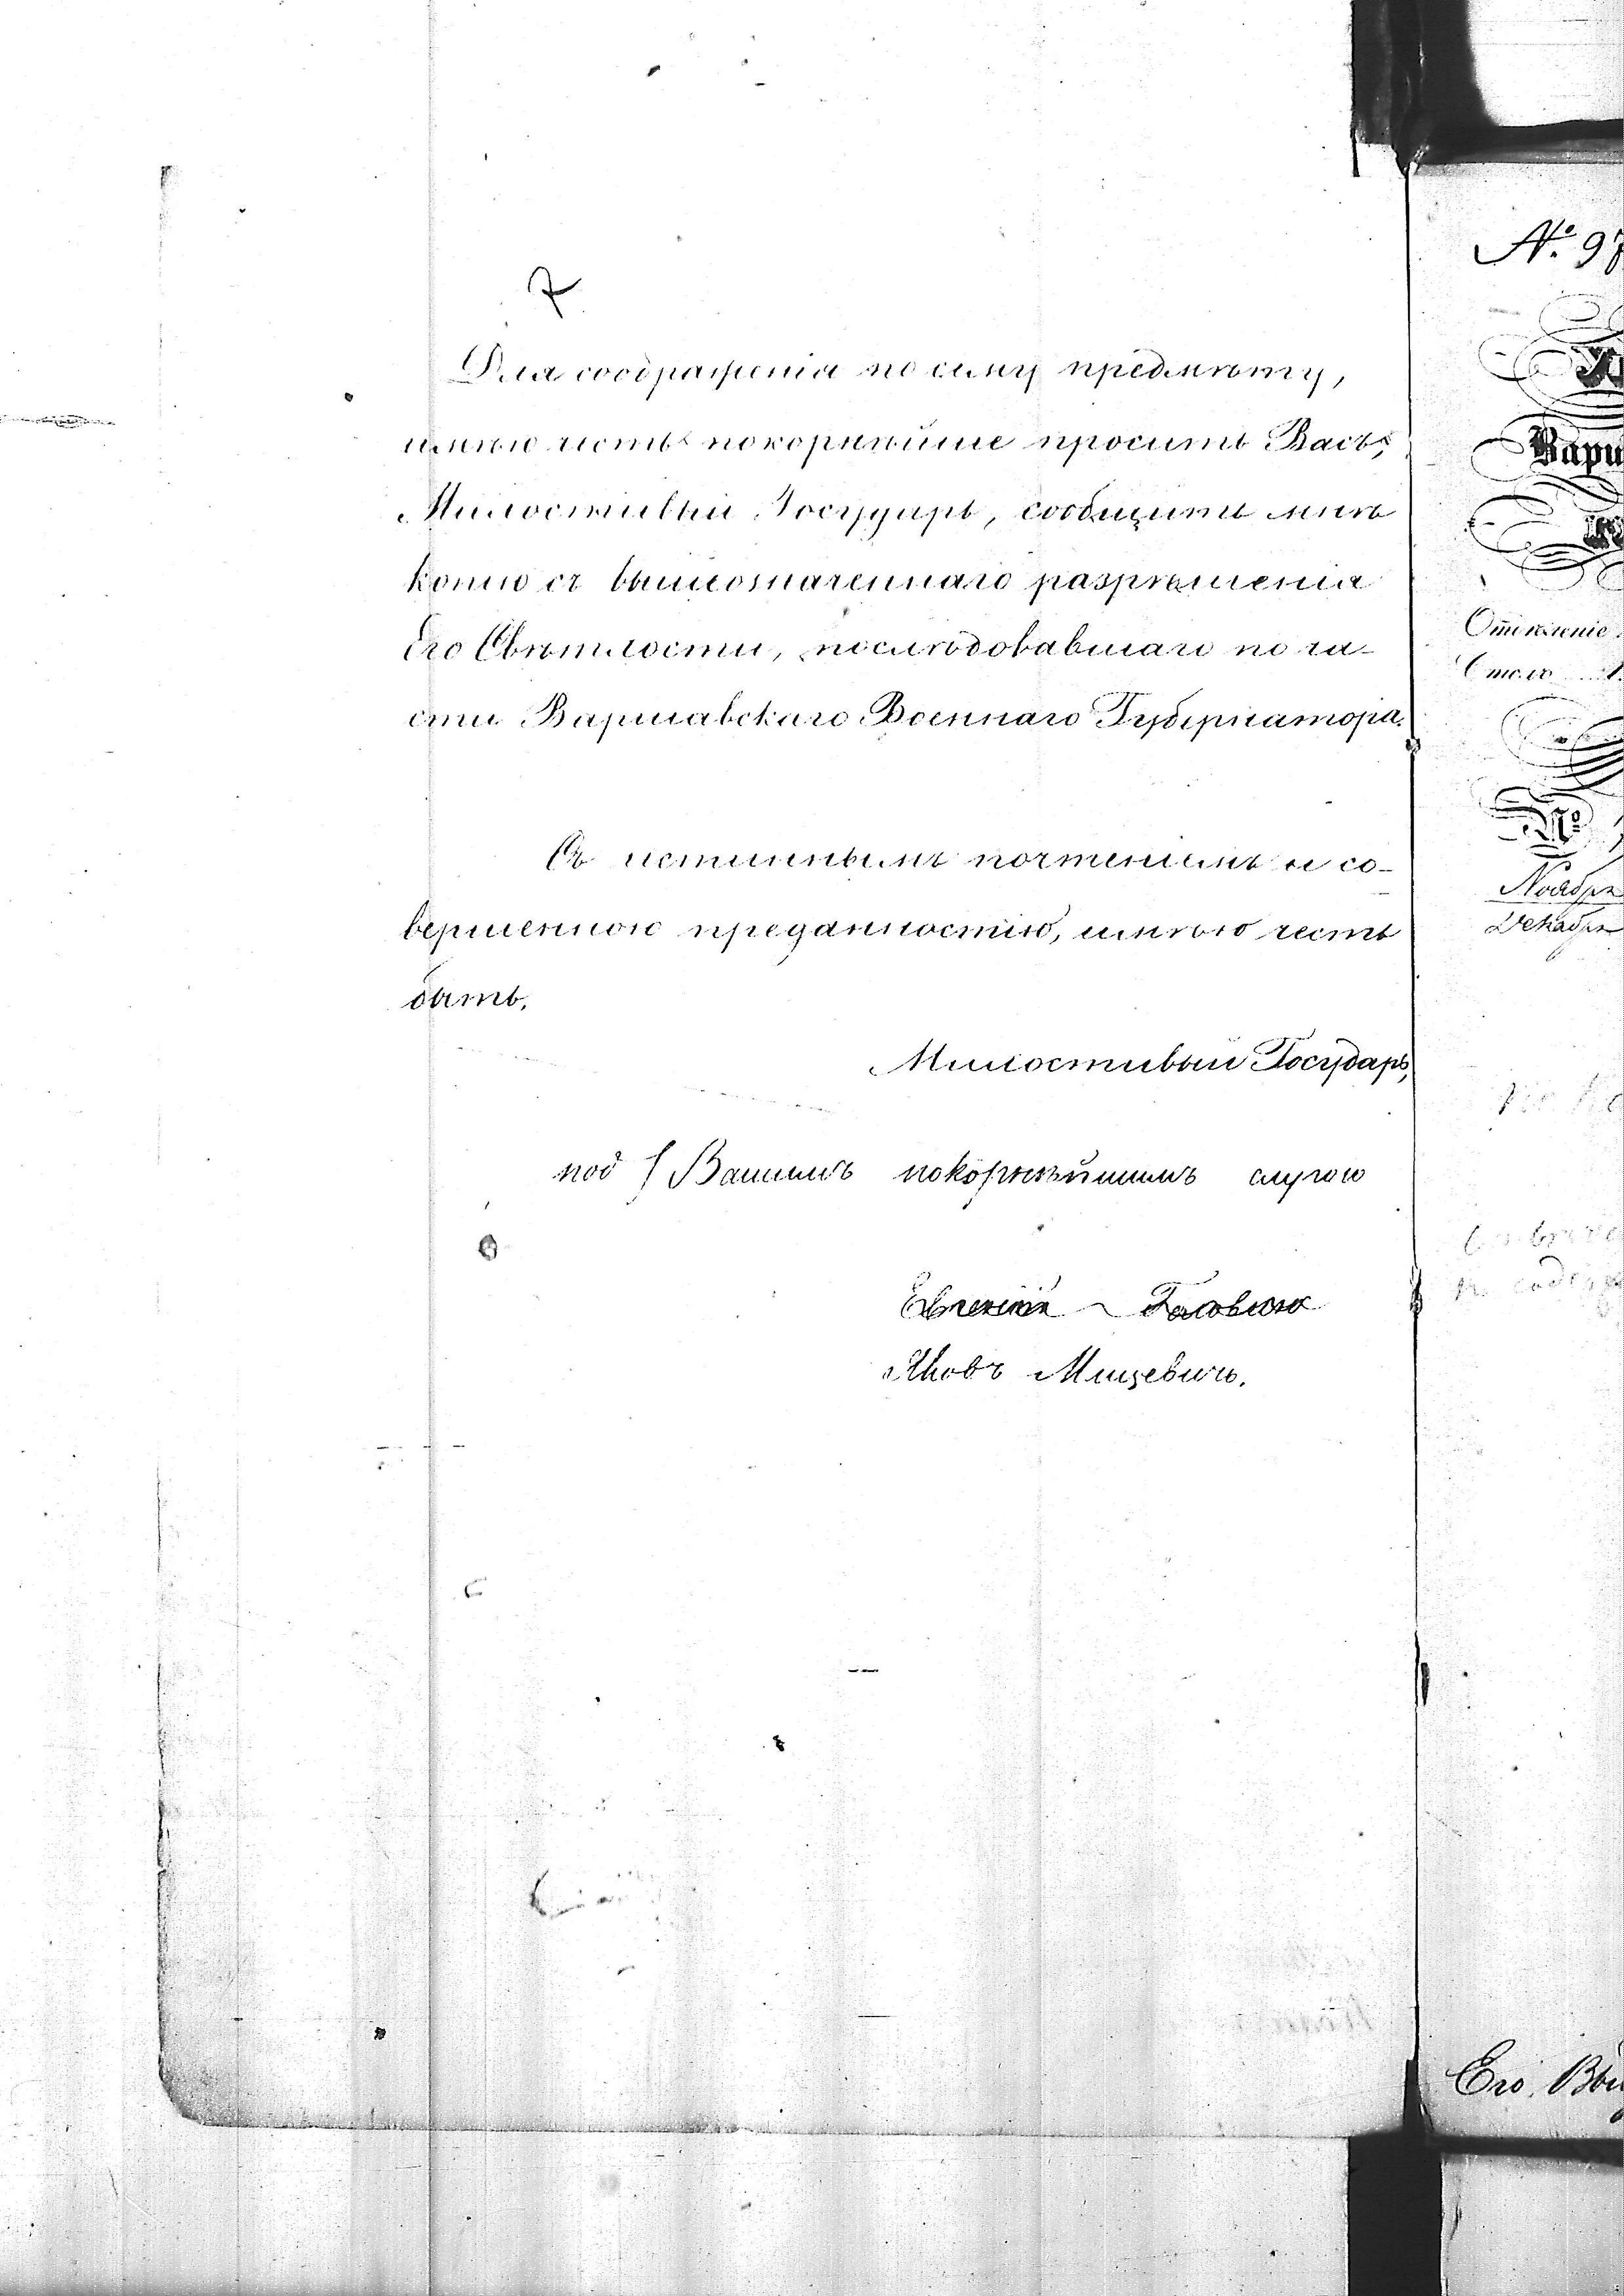 Для соображенія по сему предмѣту,
имѣю честь покорнѣйше просить Васъ,
Милостивый Государь, сообщить мнѣ
копію съ вышеозначеннаго разрѣшенія
Его Свѣтлости, послѣдовавшаго по ча-
сти Варшавскаго Военнаго Губернатора.
Съ истиннымъ почтеніемъ и со-
вершенною преданностію, имѣю честь
быть,
Милостивый Государь,
под / Вашимъ покорнѣйшимъ слугою
Евгеній Головинъ
Яковъ Мицевичъ.
№ 97
Варш
Отдѣленіе
Столъ
№
Ноября
Декабря
Его Выс